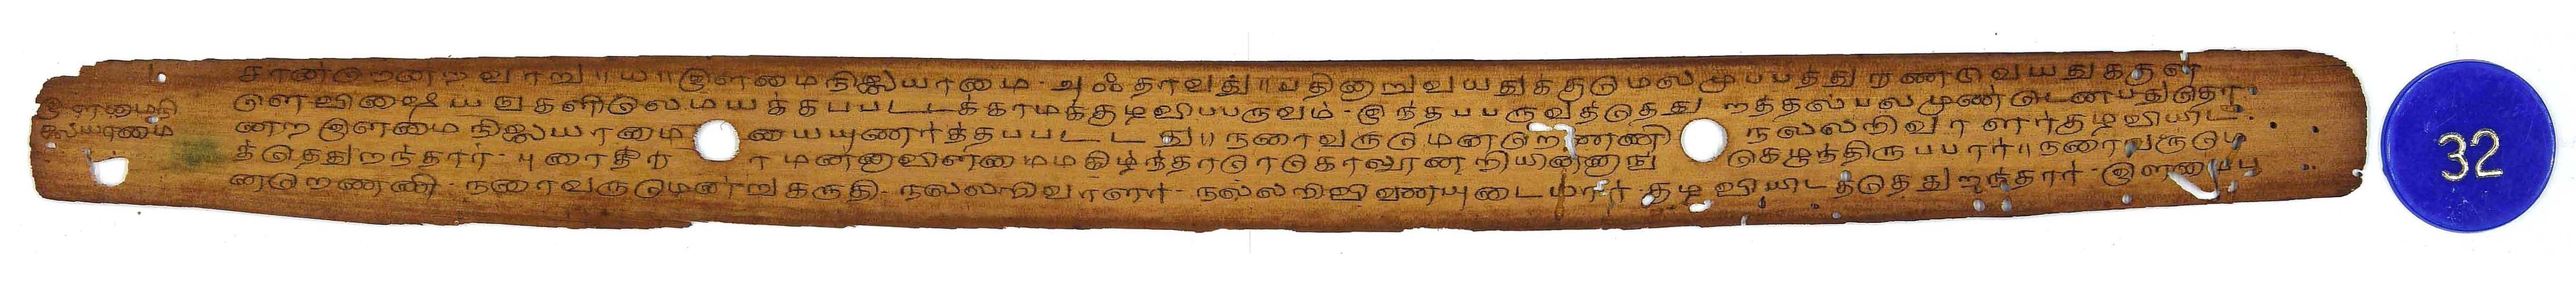 இளமைநி
லையாமை
சான்றென்றவாறு ॥ ய ॥ இளமைநிலையாமை - அஃதாவது ॥ பதினாறுவயதுக்குமெல் முப்பத்துறண்டுவயதுக்குள்
ளெ விஷயஙகளிலெ மயக்கப்பட்டக்காமக்குழவிப்பருவம் - இந்தப்பருவத்தெ துறத்தல் பலமுண்டென்பதுதொ
ன்ற இளமைநிலையாமை யையுணர்த்தப்பட்டது ॥ நரைவருமென்றெண்ணி நல்லறிவாளர்குழவியிட
த்தெதுறந்தார் - புரைதீரா மன்னாவிளமைமகிழ்ந்தாரெகொலூன்றியின்னாங் கெழுந்திருப்பார் ॥ நரைவருமெ
ன்றெண்ணி - நரைவருமென்றுகருதி - நல்லறிவாளர் - நல்லறிவினையுடையார் - குழவியிடத்தெதுறந்தார் - இளமைப்ப